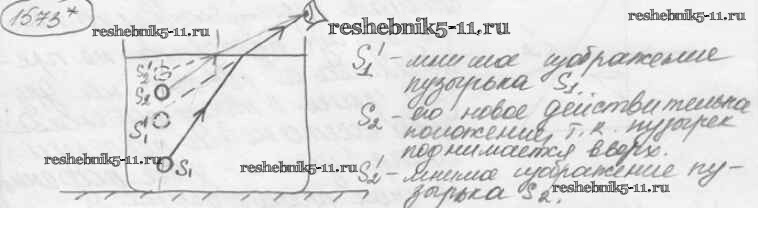 1573*
reshebnik5-11.ru
reshebnik5-11.ru
reshebnik5-11.ru
S₁' - мнимое изображение
пузырька S₁.
S₂ - его новое действительное
положение, т.к. пузырек
поднимается вверх.
S₂' - мнимое изображение пу-
зырька S₂.
S₂'
S₂
S₁'
S₁
reshebnik5-11.ru
reshebnik5-11.ru
reshebnik5-11.ru